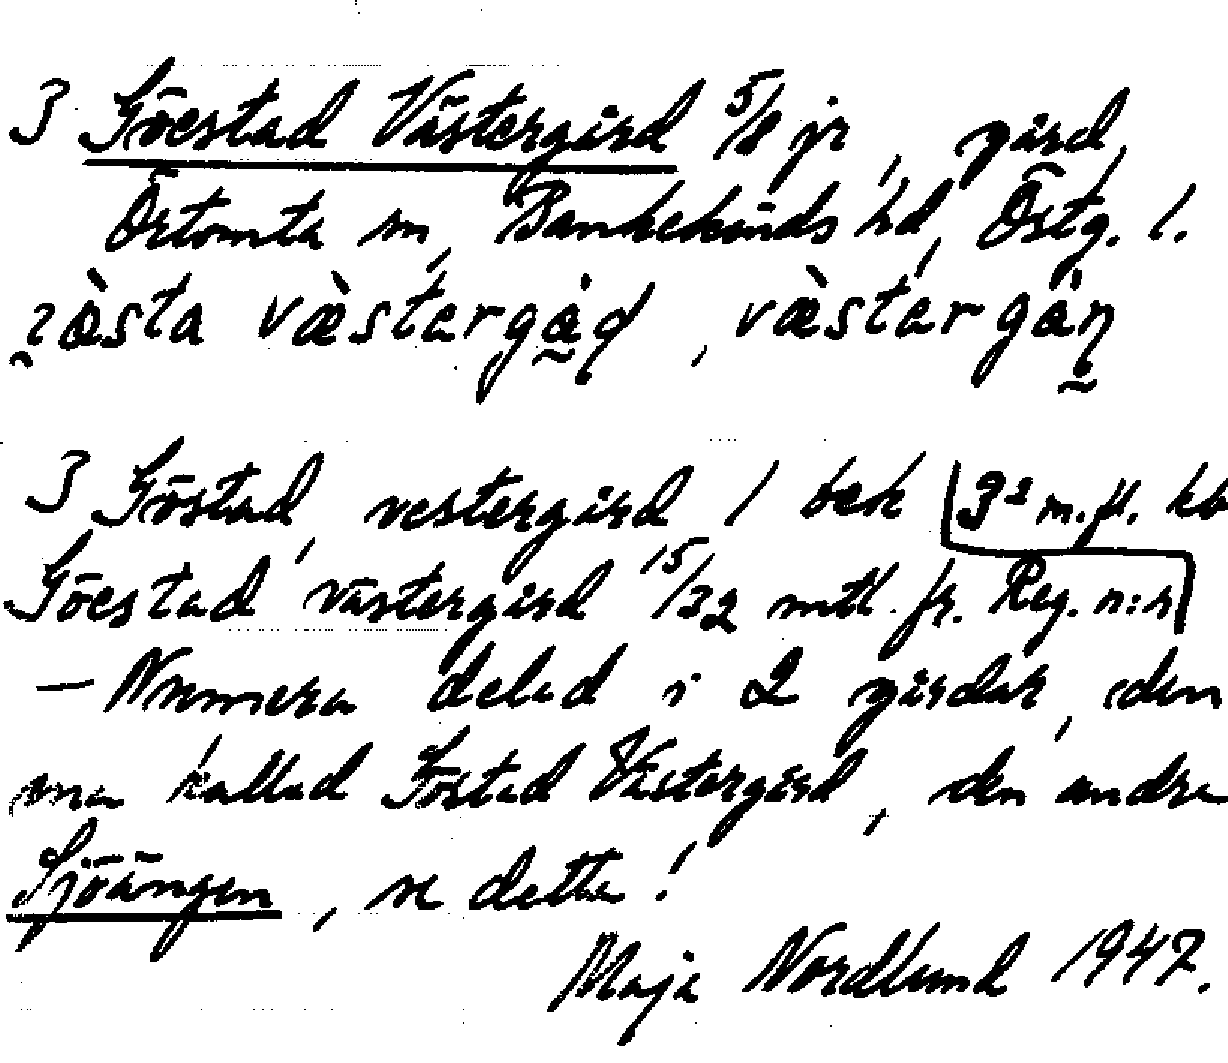 3 Göestad Västergård 5/8 jr, gård,
Örtomta sn, Bankekinds hd, Östg. l.
västərgåd, västərgån
3 Göstad, vestergård 1 bek 9² m.fl. kb
Göestad västergård 15/32 mtl. fr. Reg. n:r
— Numera delad i 2 gårdar, den
ena kallad Göstad Västergård, den andra
Sjöängen, se detta!
Maja Nordlund 1947.